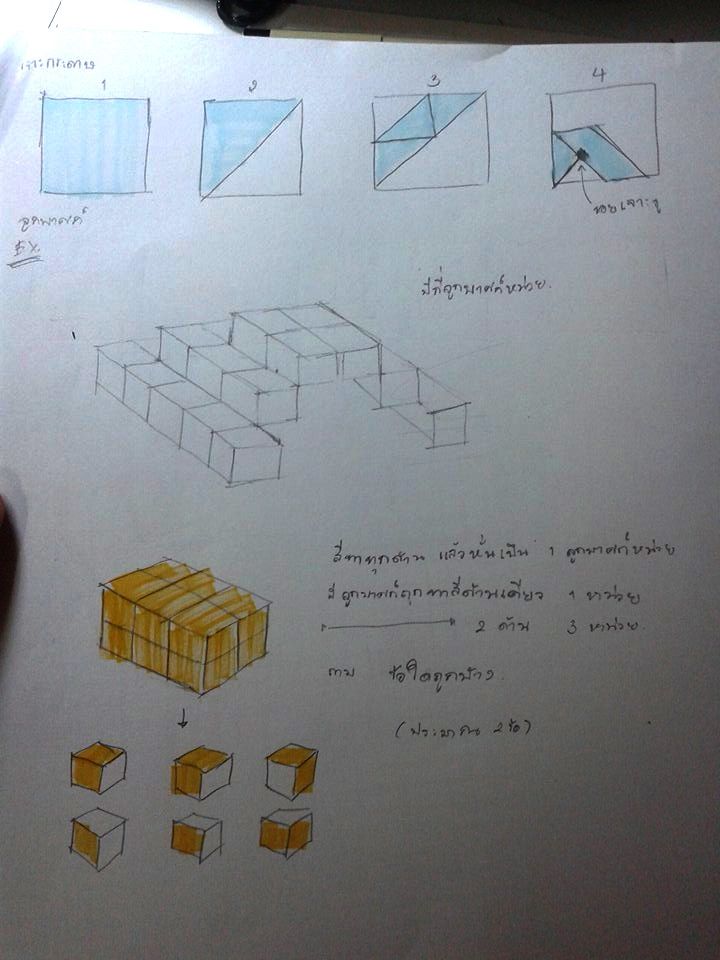 1.
เจาะกระดาษ
1 2 3 4
รอยเจาะรู
ลูกบาศก์
EX.
มีกี่ลูกบาศก์หน่วย.
สีทาทุกด้าน แล้วหั่นเป็น 1 ลูกบาศก์หน่วย
มีลูกบาศก์ถูกทาสีด้านเดียว 1 หน่วย
2 ด้าน 3 หน่วย.
ถาม ข้อใดถูกบ้าง.
(ประมาณ 2 ข้อ)